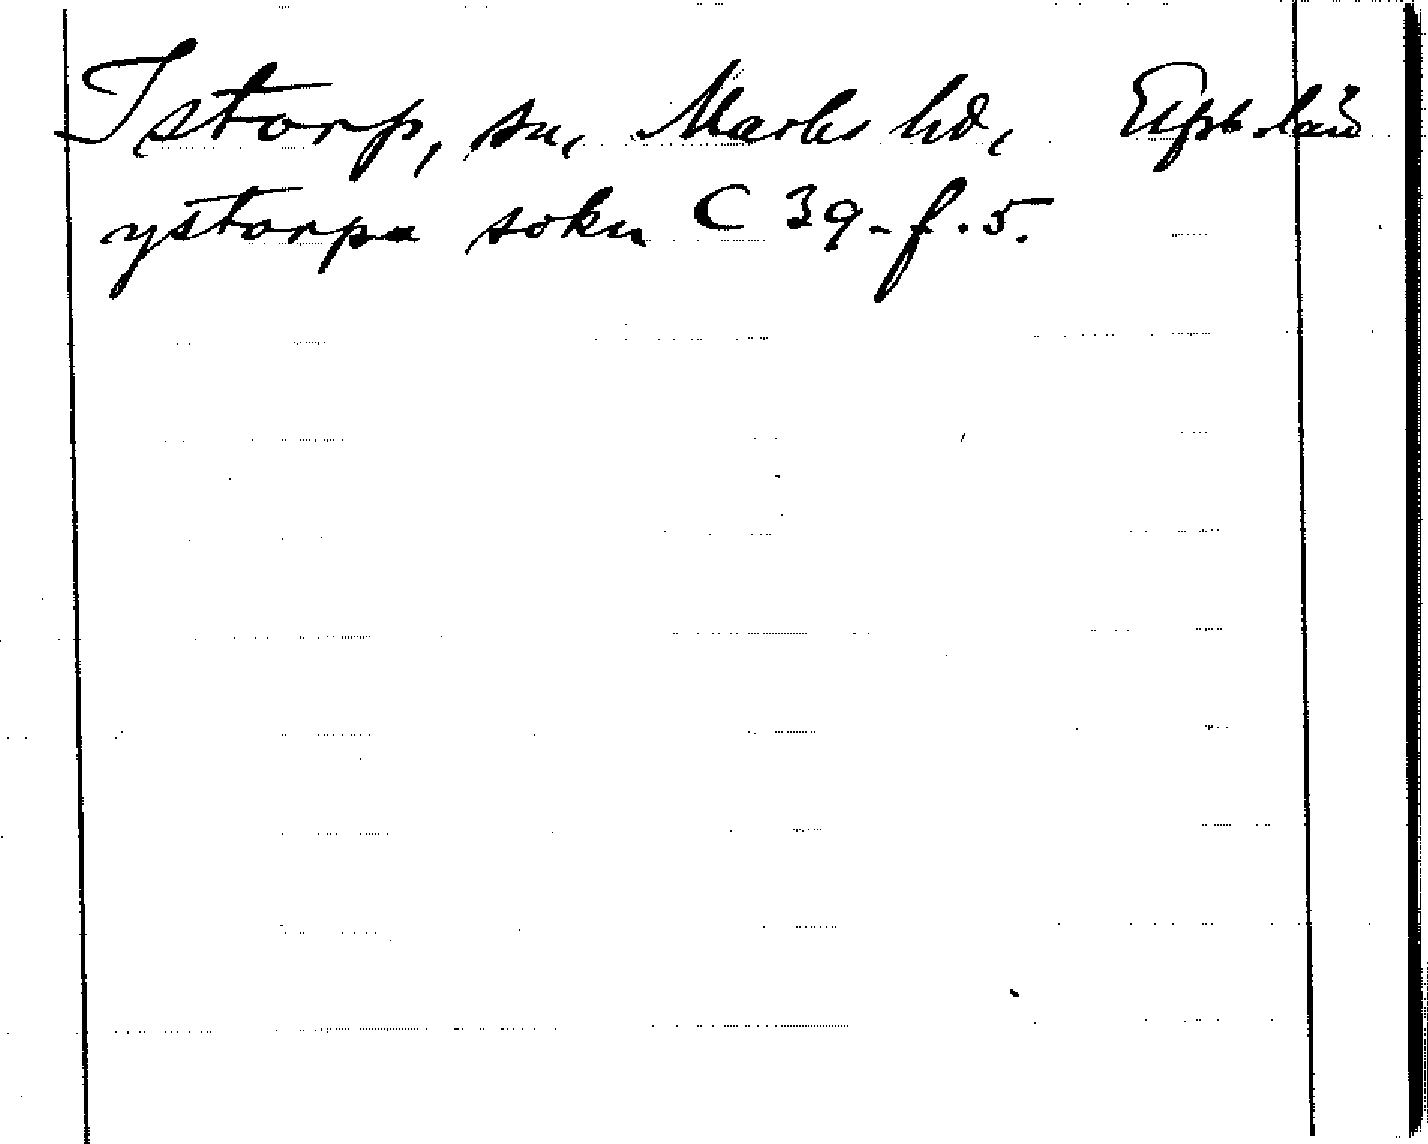 Istorp, sn, Marks hd, Elfsb. län
ystorpa sokn C 39. f. 5.